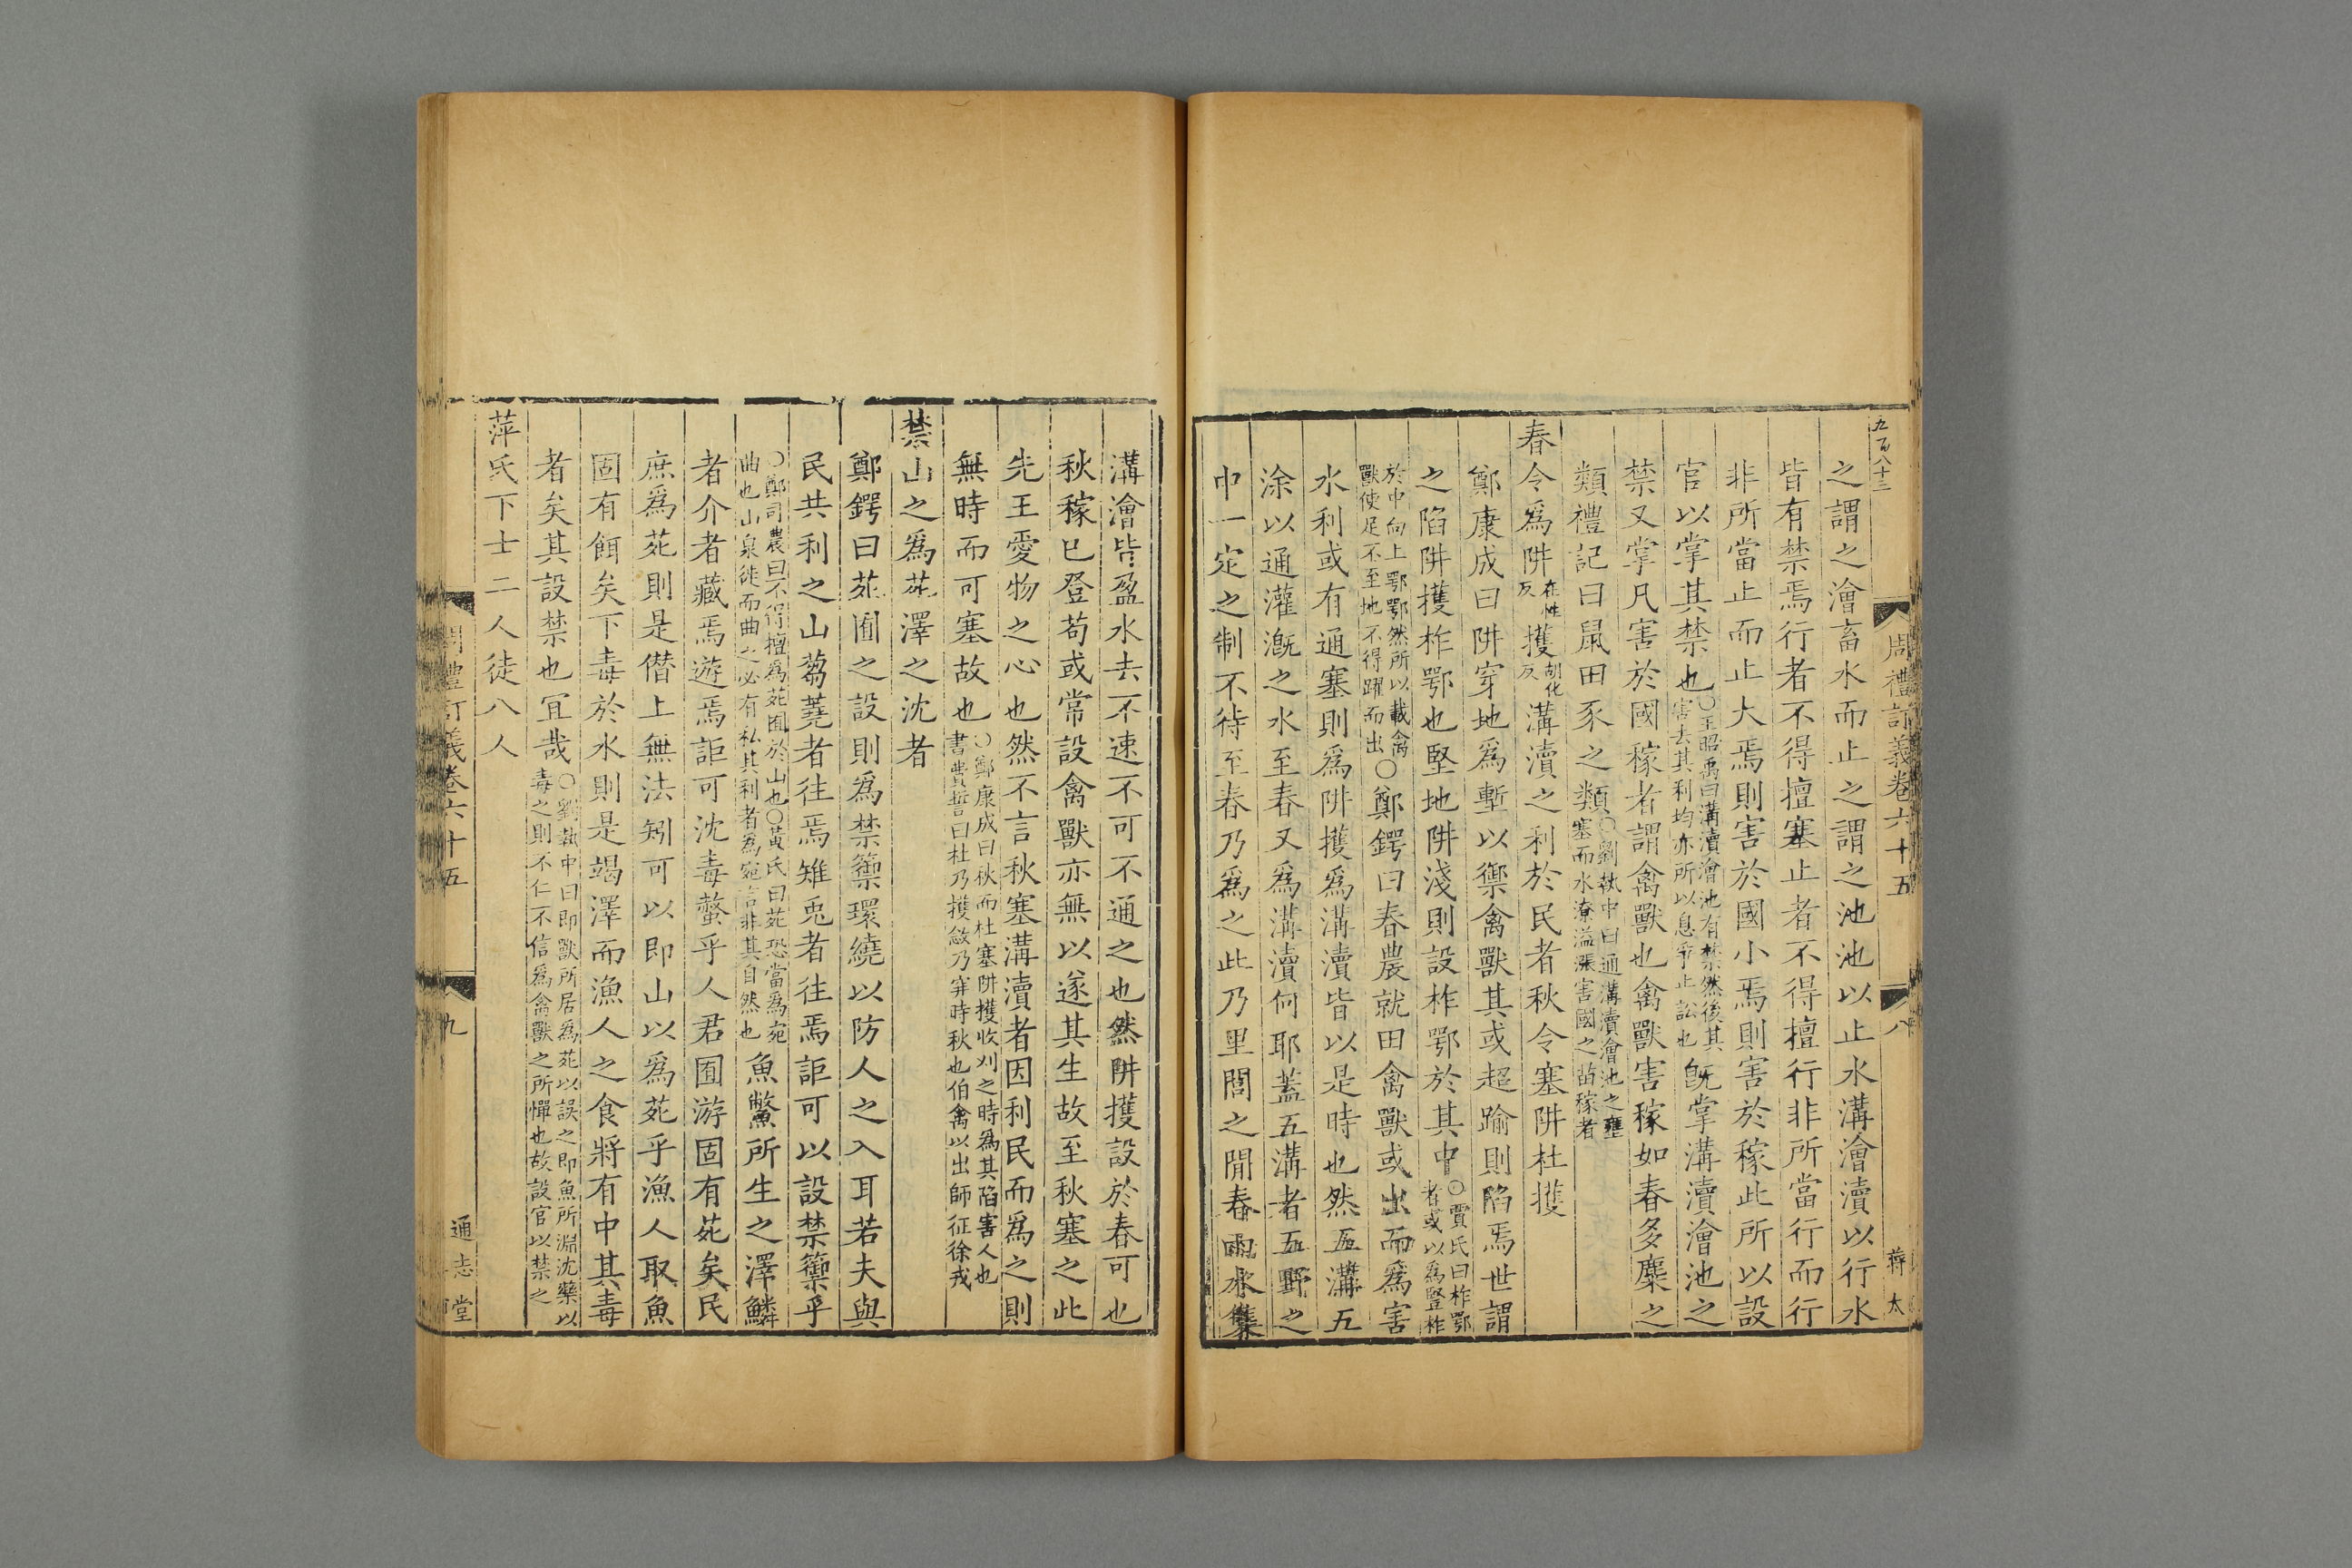 九百八十三
周禮訂義卷六十五
八
蔣太
之謂之澮畜水而止之謂之池池以止水溝澮瀆以行水
皆有禁焉行者不得擅塞止者不得擅行非所當行而行
非所當止而止大焉則害於國小焉則害於稼此所以設
官以掌其禁也○王昭禹曰溝瀆澮池有禁然後其害去其利均亦所以息爭止訟也旣掌溝瀆澮池之
禁又掌凡害於國稼者謂禽獸也禽獸害稼如春多麋之
類禮記曰鼠田豕之類○劉執中曰通溝瀆澮池之壅塞而水潦溢漲害國之苗稼者
春令爲阱在性反擭胡化反溝瀆之利於民者秋令塞阱杜擭
鄭康成曰阱穿地爲塹以禦禽獸其或超踰則陷焉世謂
之陷阱擭柞鄂也堅地阱淺則設柞鄂於其中○賈氏曰柞鄂者或以爲豎柞
於中向上鄂鄂然所以載禽獸使足不至地不得躍而出○鄭鍔曰春農就田禽獸或出而爲害
水利或有通塞則爲阱擭爲溝瀆皆以是時也然五溝五
涂以通灌漑之水至春又爲溝瀆何耶蓋五溝者五野之
中一定之制不待至春乃爲之此乃里閭之閒春雨水集
溝澮皆盈水去不速不可不通之也然阱擭設於春可也
秋稼已登苟或常設禽獸亦無以遂其生故至秋塞之此
先王愛物之心也然不言秋塞溝瀆者因利民而爲之則
無時而可塞故也○鄭康成曰秋而杜塞阱擭收刈之時爲其陷害人也書費誓曰杜乃擭敜乃穽時秋也伯禽以出師征徐戎
禁山之爲苑澤之沈者
鄭鍔曰苑囿之設則爲禁籞環繞以防人之入耳若夫與
民共利之山蒭蕘者往焉雉兎者往焉詎可以設禁籞乎
○鄭司農曰不得擅爲苑囿於山也○黃氏曰苑恐當爲宛曲也山泉徙而曲之必有私其利者爲宛言非其自然也魚鼈所生之澤鱗
者介者藏焉遊焉詎可沈毒螫乎人君囿游固有苑矣民
庶爲苑則是僭上無法矧可以即山以爲苑乎漁人取魚
固有餌矣下毒於水則是竭澤而漁人之食將有中其毒
者矣其設禁也宜哉○劉執中曰即獸所居爲苑以誤之即魚所淵沈藥以毒之則不仁不信爲禽獸之所憚也故設官以禁之
萍氏下士二人徒八人
周禮訂義卷六十五
九
通志堂